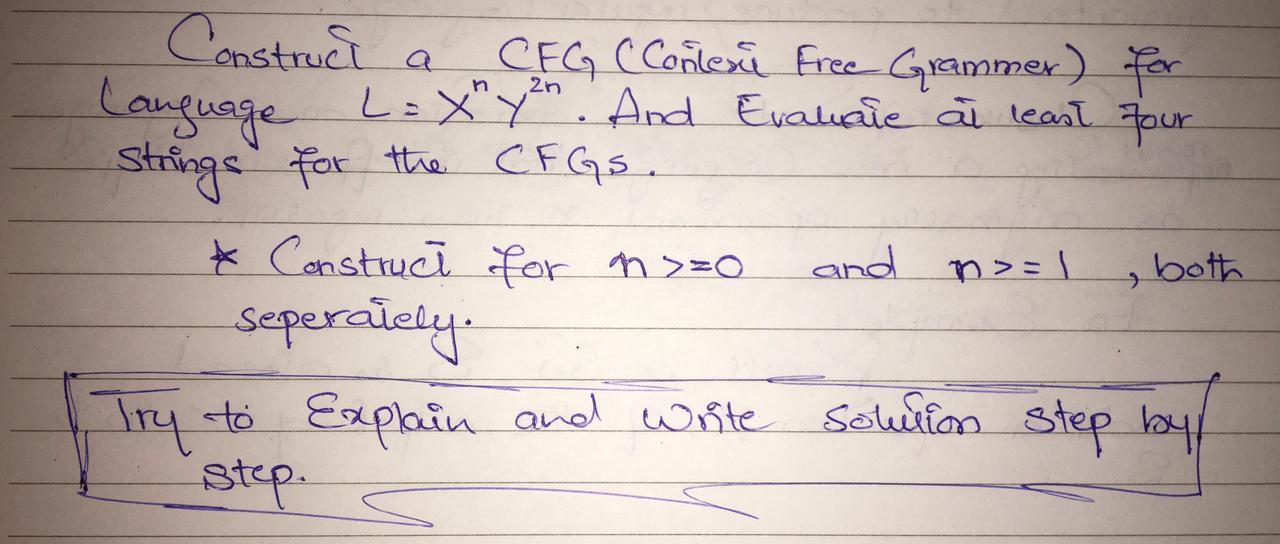 Construct a CFG (Context Free Grammer) for
Language L = X^n Y^2n. And Evaluate at least four
strings for the CFGs.
* Construct for n >= 0 and n >= 1, both
seperately.
Try to Explain and write solution step by
step.